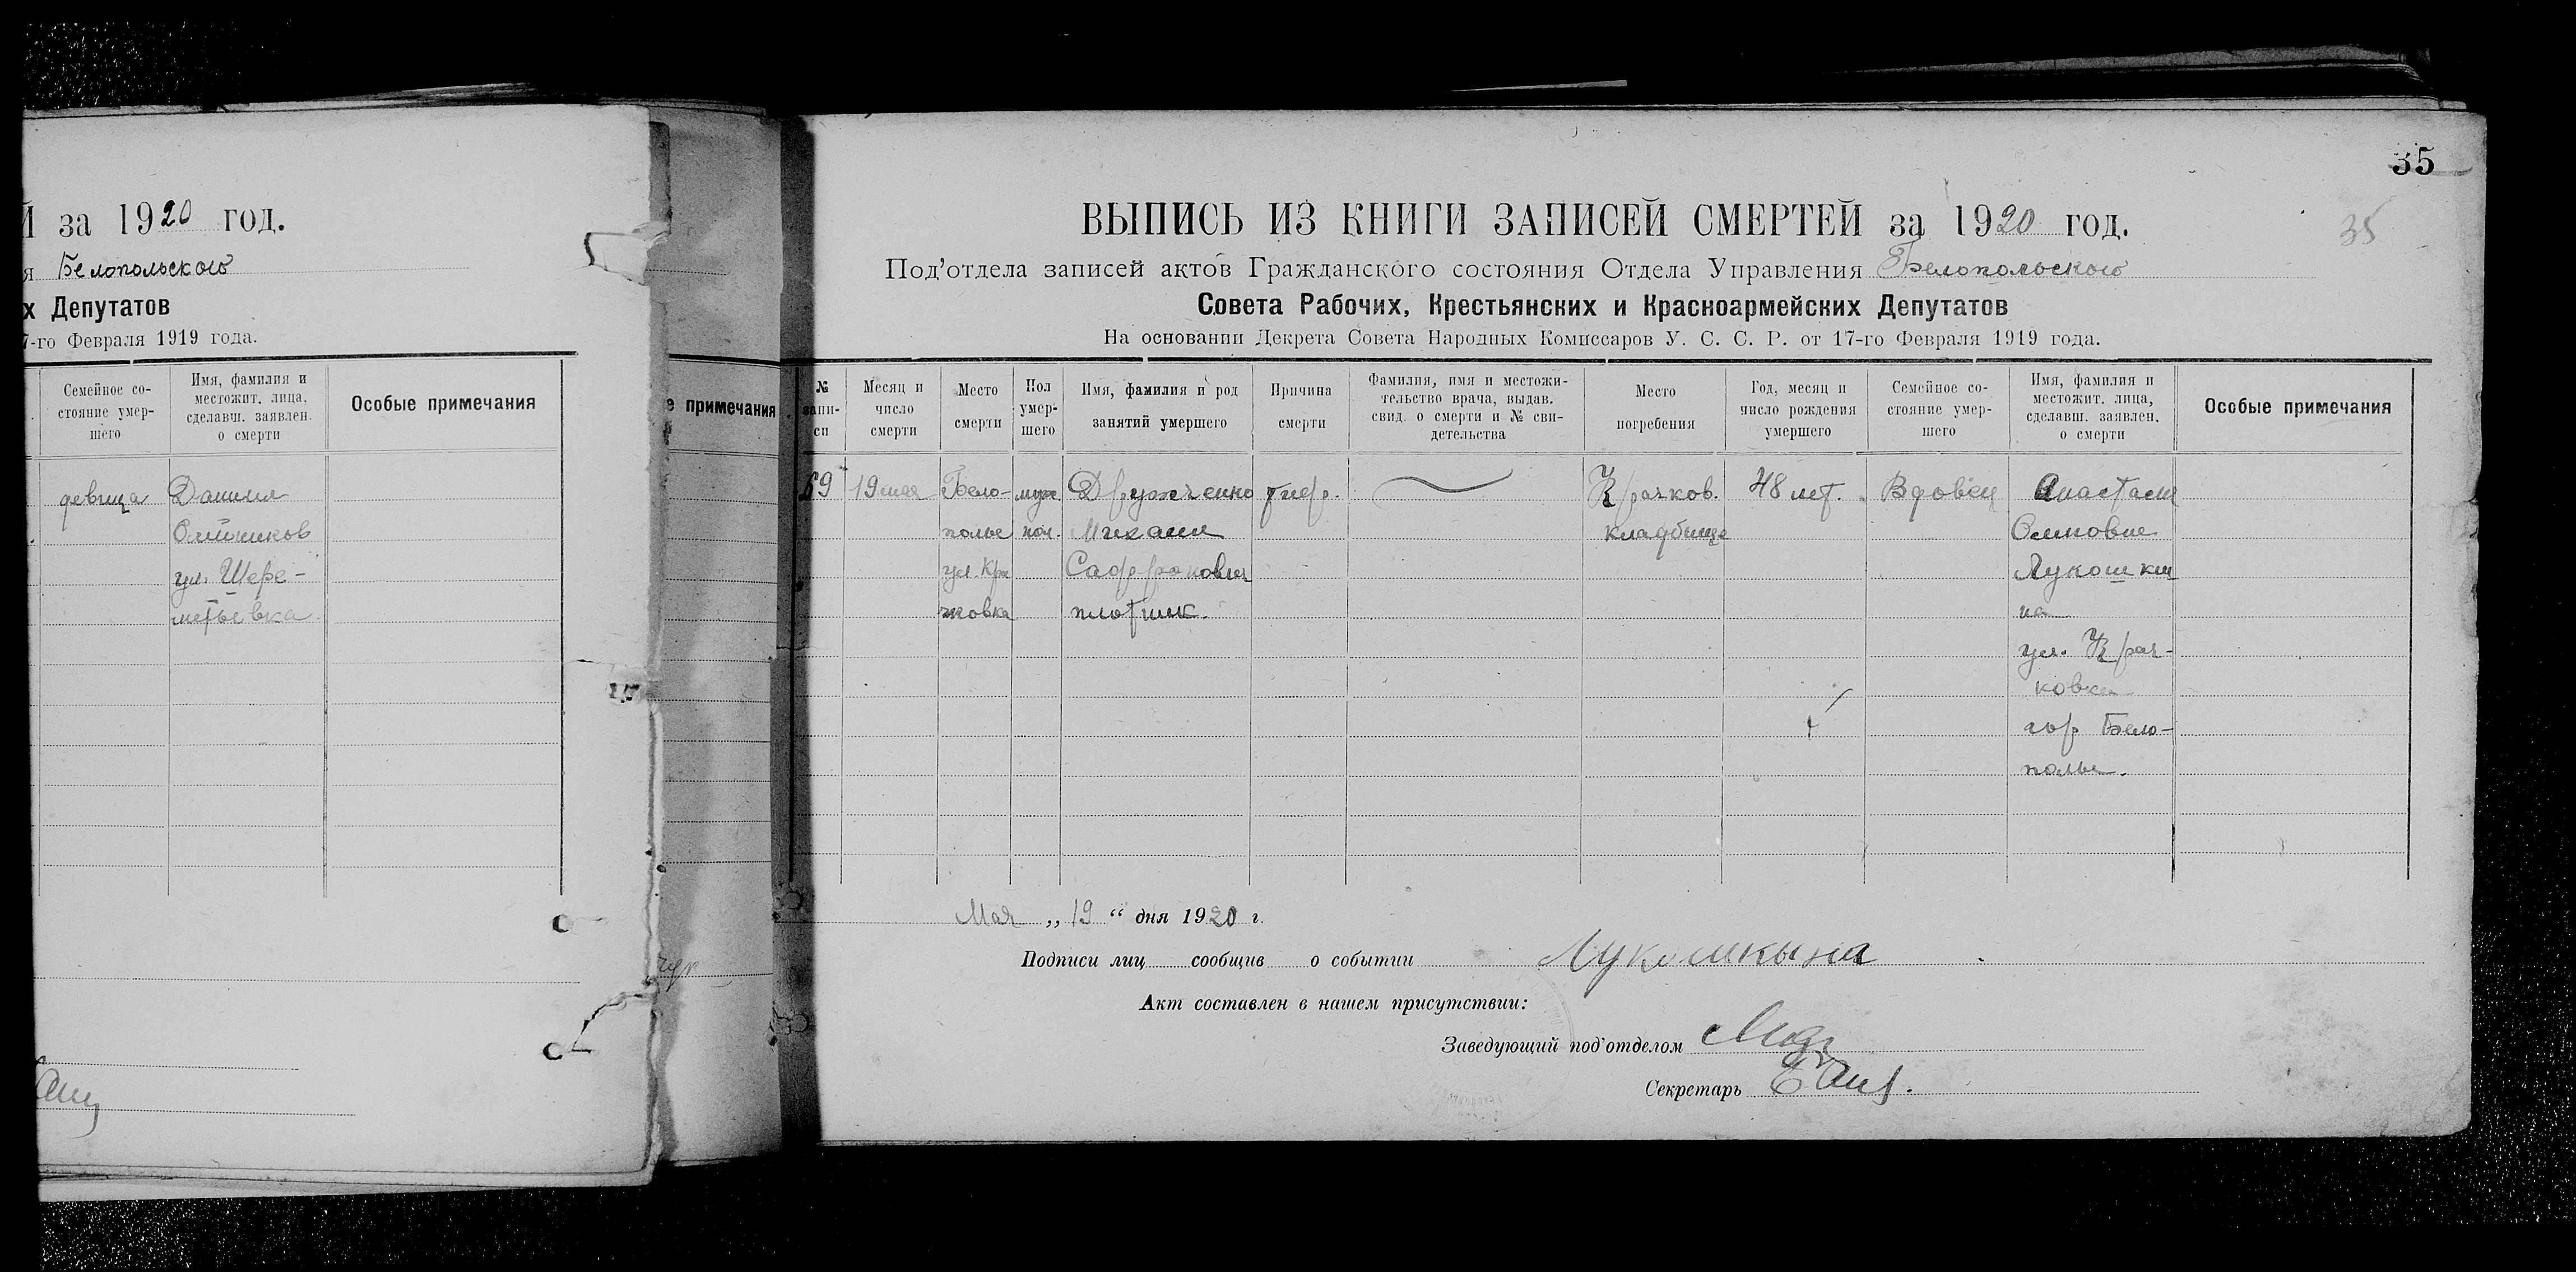 Й за 1920 год.
я Белопольского
х Депутатов
7-го Февраля 1919 года.
Семейное со-
стояние умер-
шего
Имя, фамилия и
местожит. лица,
сделавш. заявлен.
о смерти
Особые примечания
девица
Даниил
Олийников
ул. Шере-
метьевка
е примечания
35
35
ВЫПИСЬ ИЗ КНИГИ ЗАПИСЕЙ СМЕРТЕЙ за 1920 год.
Под'отдела записей актов Гражданского состояния Отдела Управления Белопольского
Совета Рабочих, Крестьянских и Красноармейских Депутатов
На основании Декрета Совета Народных Комиссаров У. С. С. Р. от 17-го Февраля 1919 года.
№
запи-
си
Месяц и
число
смерти
Место
смерти
Пол
умер-
шего
Имя, фамилия и род
занятий умершего
Причина
смерти
Фамилия, имя и местожи-
тельство врача, выдав.
свид. о смерти и № сви-
детельства
Место
погребения
Год, месяц и
число рождения
умершего
Семейное со-
стояние умер-
шего
Имя, фамилия и
местожит. лица,
сделавш. заявлен.
о смерти
Особые примечания
69
19 мая
Бело-
полье
ул. Кра
чковка
муж.
пол.
Дружченко
Михаил
Саффронович
плотник.
тиф.
Крачков.
кладбище
48 лет.
Вдовец
Анастасия
Осиповне
Лукошки
на
ул. Крач-
ковка
гор Бело-
полье.
Мая „ 19 “ дня 1920 г.
Подписи лиц сообщив о событии Лукошкына
Акт составлен в нашем присутствии:
Заведующий под'отделом
Секретарь